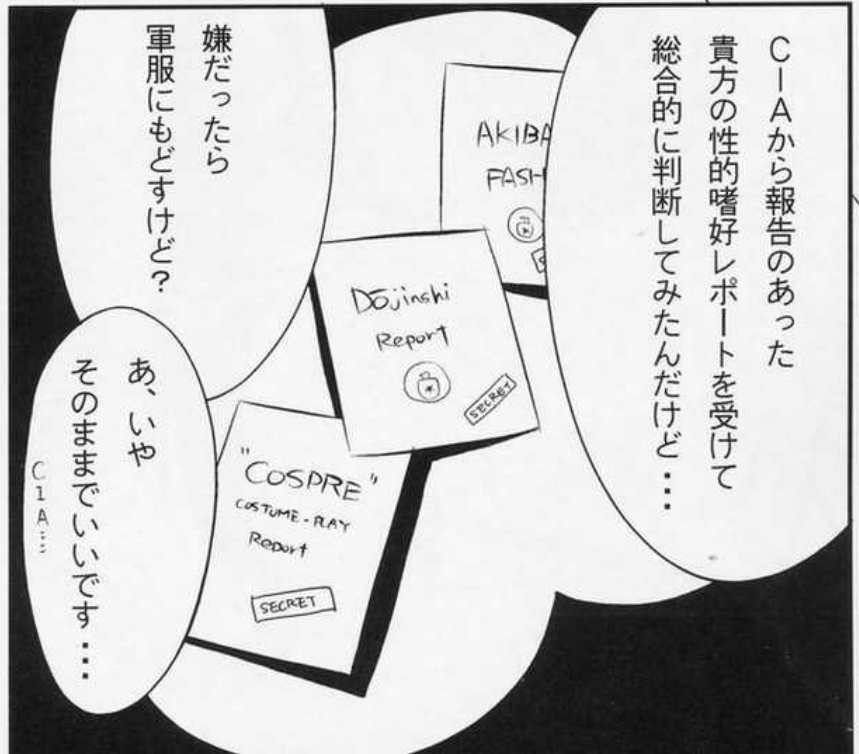 CIAから報告のあった
貴方の性的嗜好レポートを受けて
総合的に判断してみたんだけど・・・
AKIBA
FASH
Dōjinshi
Report
SECRET
"COSPRE"
COSTUME-PLAY
Report
SECRET
嫌だったら
軍服にもどすけど？
あ、いや
そのままでいいです・・・
CIA…